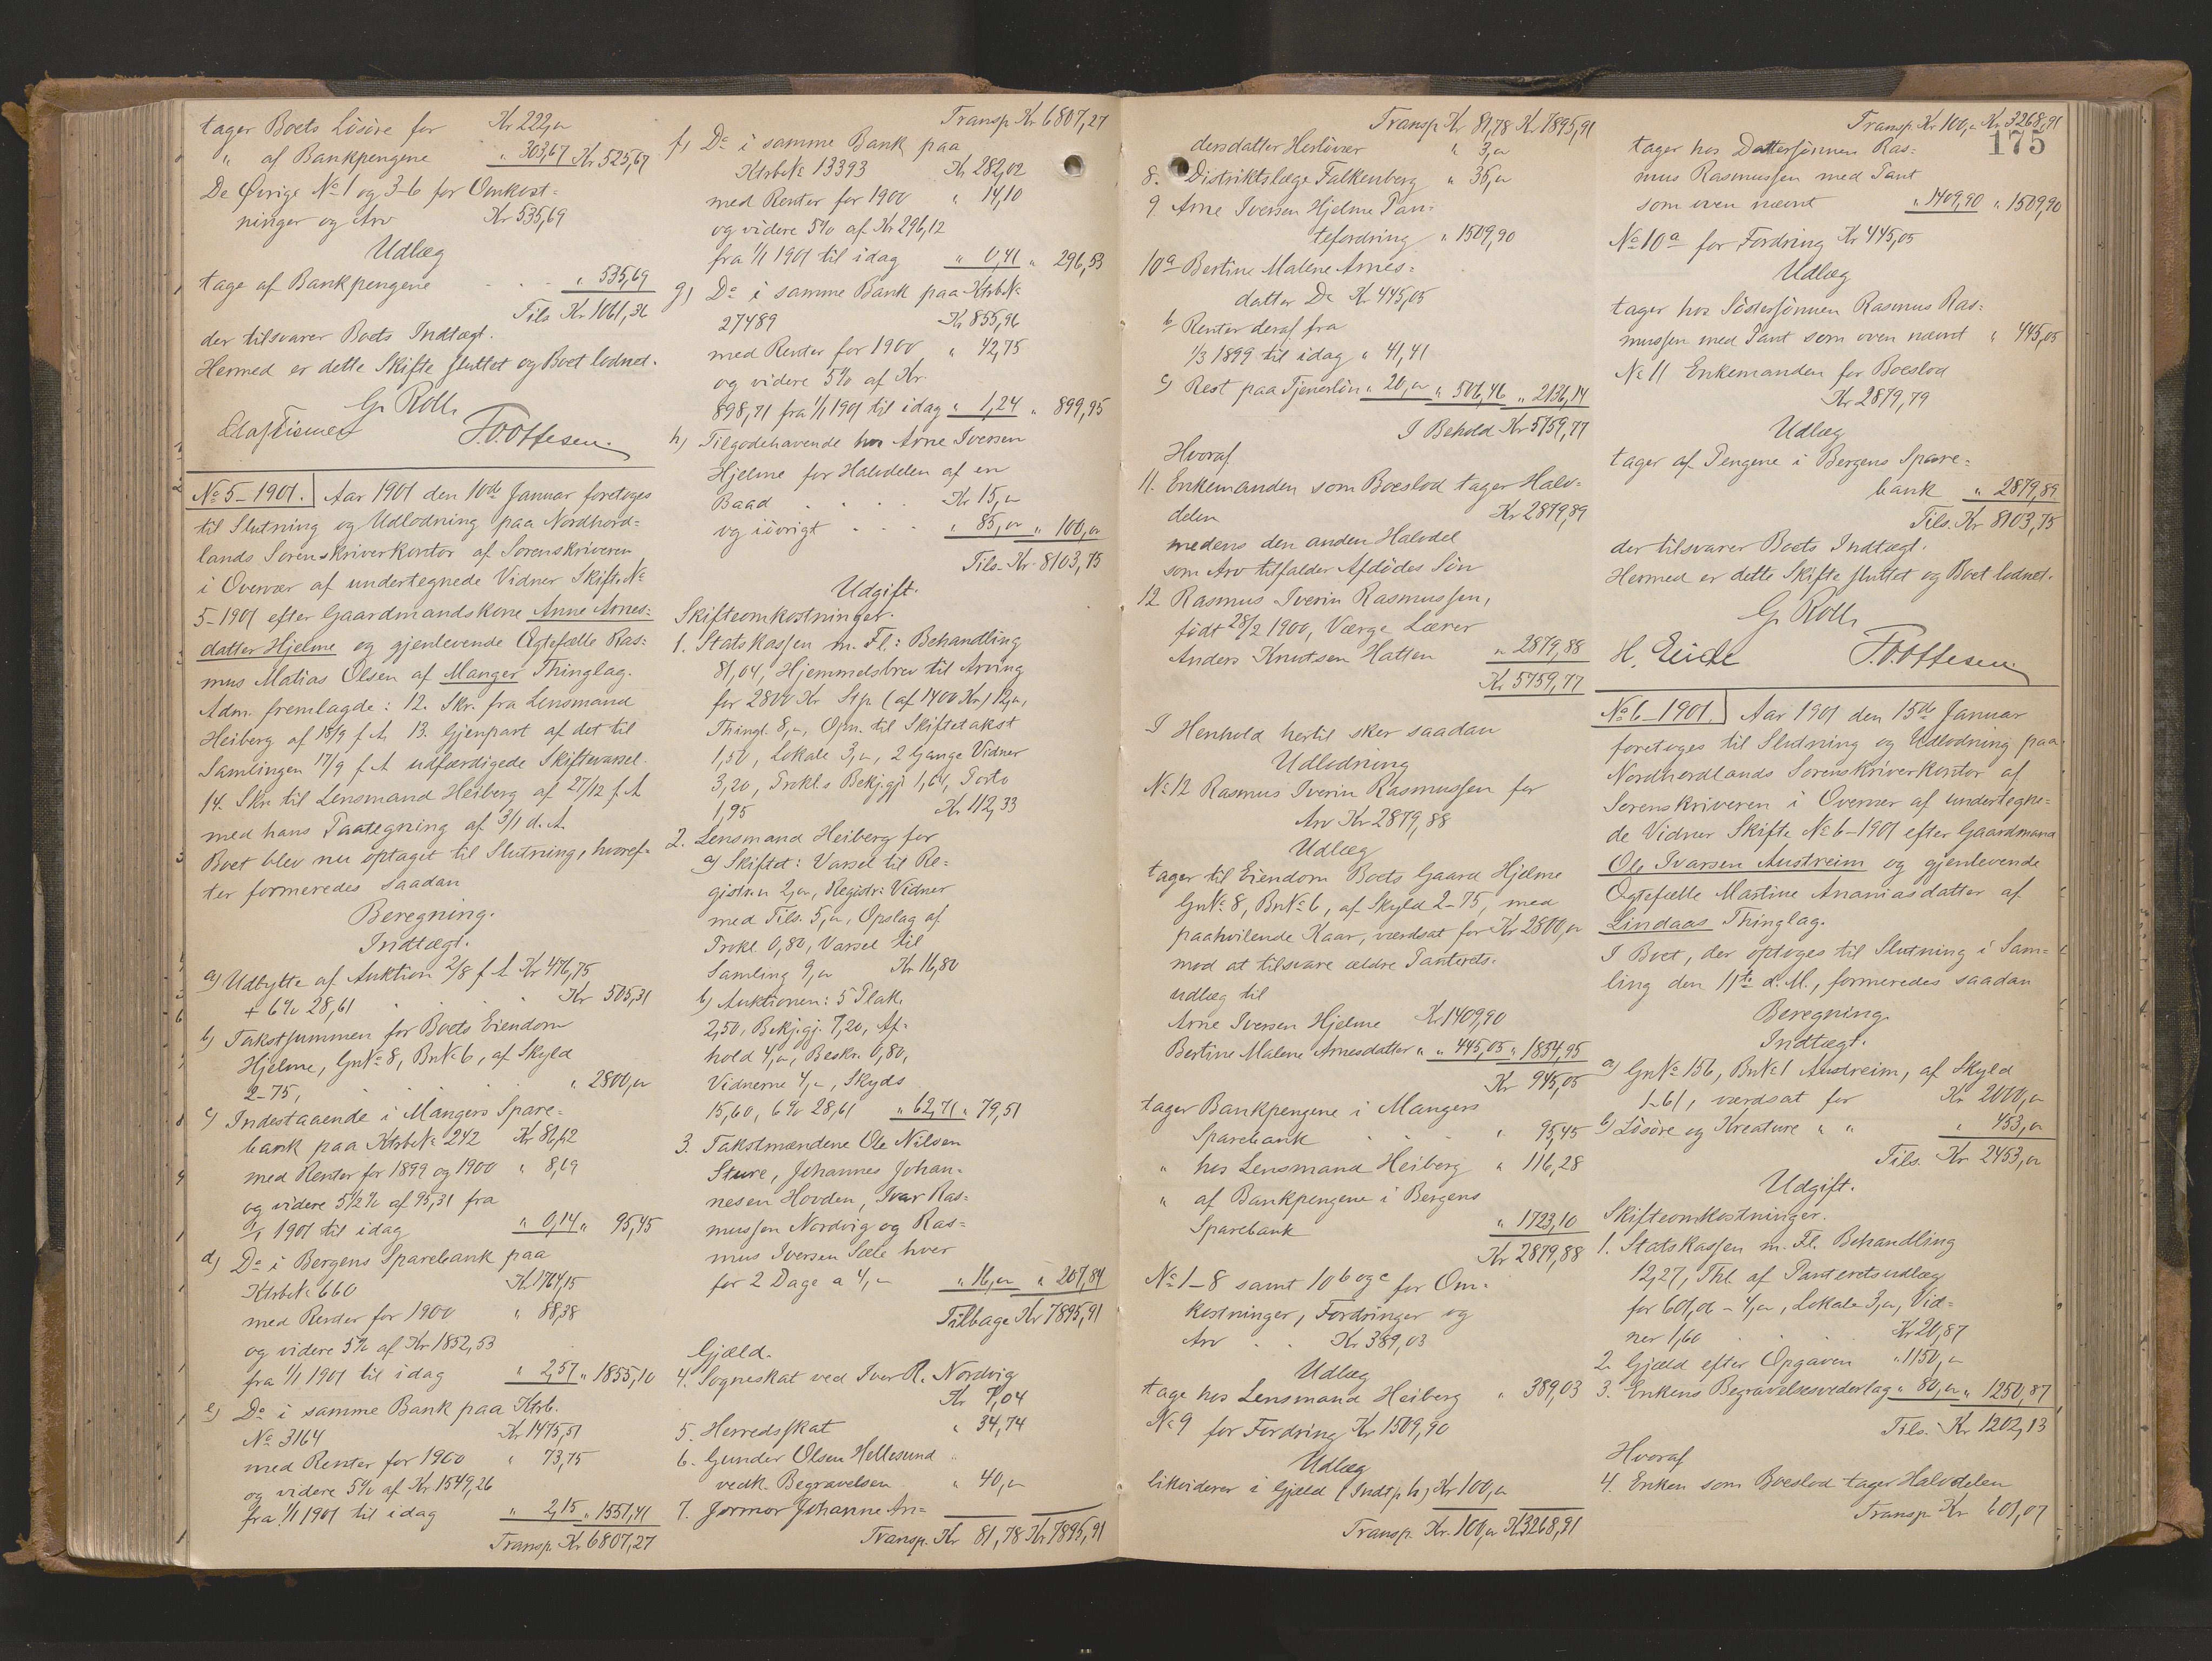 tager Boets Løsøre for Kr 222,„
„ af Bankpengene „ 303,67 Kr 525,67
De Øvrige No 1 og 3-6 for Omkost-
ninger og Arv Kr 535,69
Udlæg
tage af Bankpengene „ 535,69
Tils. Kr 1061,36
der tilsvarer Boets Indtægt.
Hermed er dette Skifte sluttet og Boet lodnet.
G. Roll
T. O. Offesen.
No 5-1901. Aar 1901 den 10de Januar foretoges
til Slutning og Udlodning paa Nordhord=
lands Sorenskriverkontor af Sorenskriveren
i Overvær af undertegnede Vidner Skifte No
5-1901 efter Gaardmandskone Anne Arnes=
datter Hjelme og gjenlevende Ægtefælle Ras=
mus Matias Olsen af Manger Thinglag.
Adm. fremlagde: 12. Skr. fra Lensmand
Heiberg af 18/9 f. A. 13. Gjenpart af det til
Samlingen 17/9 f. A. udfærdigede Skiftevarsel.
14. Skr. til Lensmand Heiberg af 27/12 f. A.
med hans Paategning af 3/1 d. A.
Boet blev nu optaget til Slutning, hvoref=
ter formeredes saadan
Beregning.
Indtægt.
a) Udbytte af Auktion 2/8 f. A. Kr 476,75
+ 6% 28,61 Kr 505,31
b) Takstsummen for Boets Eiendom
Hjelme, GnNo 8, BnNo 6, af Skyld
2-75, „ 2800,„
c) Indestaaende i Mangers Spare=
bank paa KtrbNo 242 Kr 86,62
med Renter for 1899 og 1900 „ 8,69
og videre 5 1/2 % af 95,31 fra
1/1 1901 til idag „ 0,14 „ 95,45
d) Do i Bergens Sparebank paa
KtrbNo 660 Kr 1764,15
med Renter for 1900 „ 88,38
og videre 5% af Kr 1852,53
fra 1/1 1901 til idag „ 2,57 „ 1855,10
e) Do i samme Bank paa Ktrb.
No 3164 Kr 1475,51
med Renter for 1900 „ 73,75
og videre 5% af Kr 1549,26
fra 1/1 1901 til idag „ 2,15 „ 1551,41
Transp. Kr 6807,27
Transp. Kr 6807,27
f) Do i samme Bank paa
KtrbNo 13393 Kr 282,02
med Renter for 1900 „ 14,10
og videre 5% af Kr 296,12
fra 1/1 1901 til idag „ 0,41 „ 296,53
g) Do i samme Bank paa KtrbNo
27489 Kr 855,96
med Renter for 1900 „ 42,75
og videre 5% af Kr
898,71 fra 1/1 1901 til idag „ 1,24 „ 899,95
h) Tilgodehavende hos Arne Iversen
Hjelme for Halvdelen af en
Baad Kr 15,„
og iøvrigt „ 85,„ „ 100,„
Tils. Kr 8103,75
Udgift.
Skifteomkostninger.
1. Statskassen m. Fl.: Behandling
81,04, Hjemmelsbrev til Arving
for 2800 Kr Stp. (af 1400 Kr) 12,„,
Thingl. 8,„, Opn. til Skiftetakst
1,50, Lokale 3,„, 2 Gange Vidner
3,20, Prokl.s Bekj.gj. 1,64, Porto
1,95 Kr 112,33
2. Lensmand Heiberg for
a) Skiftet: Varsel til Re=
gistr.n 2,„, Registr: Vidner
med Tils. 5,„, Opslag af
Prokl 0,80, Varsel til
Samling 9,„ Kr 16,80
b) Auktionen: 5 Plak.
2,50, Bekj.gj. 7,20, Af=
hold 4,„, Beskr. 0,80,
Vidnerne 4,„, Skyds
15,60, 6% 28,61 „ 62,71 „ 79,51
3. Takstmændene Ole Nilsen
Sture, Johannes Johan=
nesen Hovden, Ivar Ras=
mussen Nordvig og Ras=
mus Iversen Sæle hver
for 2 Dage a 4,„ „ 16,„ „ 207,84
Tilbage Kr 7895,91
Gjæld.
4. Sogneskat ved Iver R. Nordvig
Kr 7,04
5. Herredsskat „ 34,74
6. Gunder Olsen Hellesund
vedk. Begravelsen „ 40,„
7. Jormor Johanne An=
Transp. Kr 81,78 Kr 7895,91
Transp. Kr 81,78 Kr 7895,91
dersdatter Herløvær „ 3,„
8. Distriktslæge Falkenberg „ 36,„
9. Arne Iversen Hjelme Pan=
tefordring „ 1509,90
10a Bertine Malene Arnes=
datter Do Kr 445,05
b Renter deraf fra
1/3 1899 til idag „ 41,41
c) Rest paa Tjenerløn „ 20,„ „ 506,46 „ 2136,14
I Behold Kr 5759,77
Hvoraf
11. Enkemanden som Boeslod tager Halv=
delen Kr 2879,89
medens den anden Halvdel
som Arv tilfalder Afdødes Søn
12 Rasmus Iverin Rasmussen,
født 28/2 1900, Værge Lærer
Anders Knutsen Hatten „ 2879,88
Kr 5759,77
I Henhold hertil sker saadan
Udlodning
No 12 Rasmus Iverin Rasmussen for
Arv Kr 2879,88
Udlæg
tager til Eiendom Boets Gaard Hjelme
GnNo 8, BnNo 6, af Skyld 2-75, med
paahvilende Kaar, værdsat for Kr 2800,„
mod at tilsvare ældre Panterets=
udlæg til
Arne Iversen Hjelme Kr 1409,90
Bertine Malene Arnesdatter „ „ 445,05 „ 1854,95
Kr 945,05
tager Bankpengene i Mangers
Sparebank „ 95,45
„ hos Lensmand Heiberg „ 116,28
„ af Bankpengene i Bergens
Sparebank „ 1723,10
Kr 2879,88
No 1-8 samt 10 b og c for Om=
kostninger, Fordringer og
Arv Kr 389,03
Udlæg
tage hos Lensmand Heiberg „ 389,03
No 9 for Fordring Kr 1509,90
Udlæg
likviderer i Gjæld (Indtp. h) Kr 100,„
Transp. Kr. 100,„ Kr 3268,91
Transp. Kr 100,„ Kr 3268,91
175
tager hos Dattersønnen Ras=
mus Rasmussen med Pant
som oven nævnt „ 1409,90 „ 1509,90
No 10a for Fordring Kr 445,05
Udlæg
tager hos Søstersønnen Rasmus Ras=
mussen med Pant som oven nævnt „ 445,05
No 11 Enkemanden for Boeslod
Kr 2879,79
Udlæg
tager af Pengene i Bergens Spare=
bank „ 2879,89
Tils. Kr 8103,75
der tilsvarer Boets Indtægt.
Hermed er dette Skifte sluttet og Boet lodnet.
G. Roll
H. Eide T. O. Offesen
No 6-1901. Aar 1901 den 15de Januar
foretoges til Slutning og Udlodning paa
Nordhordlands Sorenskriverkontor af
Sorenskriveren i Overvær af undertegne=
de Vidner Skifte No 6-1901 efter Gaardmand
Ole Ivarsen Austreim og gjenlevende
Ægtefælle Martine Ananiasdatter af
Lindaas Thinglag.
I Boet, der optoges til Slutning i Sam=
ling den 11te d. M., formeredes saadan
Beregning.
Indtægt.
a) GnNo 156, BnNo 1 Austreim, af Skyld
1-61, værdsat for Kr 2000,„
b) Løsøre og Kreature „ „ „ 453,„
Tils. Kr 2453,„
Udgift.
Skifteomkostninger.
1. Statskassen m. Fl. Behandling
12,27, Thl. af Panteretsudlæg
for 601,06 - 4,„, Lokale 3,„, Vid=
ner 1,60 Kr 20,87
2. Gjæld efter Opgaven „ 1150,„
3. Enkens Begravelsesvederlag „ 80,„ „ 1250,87
Tils. Kr 1202,13
Hvoraf
4. Enken som Boeslod tager Halvdelen
Transp. Kr 601,07